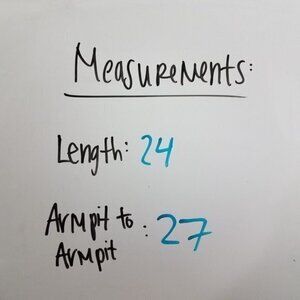 Measurements:
Length: 24
Armpit to
Armpit : 27